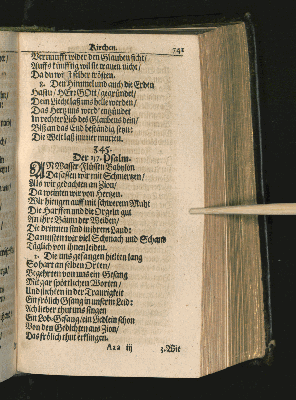 Kirchen. 741
Vernunfft wider den Glauben ficht/
Auffs künfftig wil sie trauen nicht/
Da du wirst selber trösten.
8. Den Himmel und auch die Erden
Hastu/ HErr GOtt/ gegründet/
Dein Liecht laß uns helle werden/
Das Hertz uns werd entzündet
In rechter Lieb des Glaubens dein/
Biß an das End beständig seyn:
Die Welt laß immer murren.
345.
Der 137. Psalm.
AN Wasser-Flüssen Babylon
Da sassen wir mit Schmertzen/
Als wir gedachten an Zion/
Da weinten wir von Hertzen.
Wir hiengen auff mit schwerem Muht
Die Harffen und die Orgeln gut
An ihre Bäum der Weiden/
Die drinnen sind in ihrem Land:
Da musten wir viel Schmach und Schand
Täglich von ihnen leiden.
2. Die uns gefangen hielten lang
So hart an selben Orten/
Begehrten von uns ein Gesang
Mit gar spöttlichen Worten/
Und suchten in der Traurigkeit
Ein frölich Gsang in unserm Leid:
Ach lieber thut uns singen
Ein Lob-Gesang/ ein Liedlein schon
Von den Gedichten aus Zion/
Das frölich thut erklingen.
Aaa iij 3. Wie